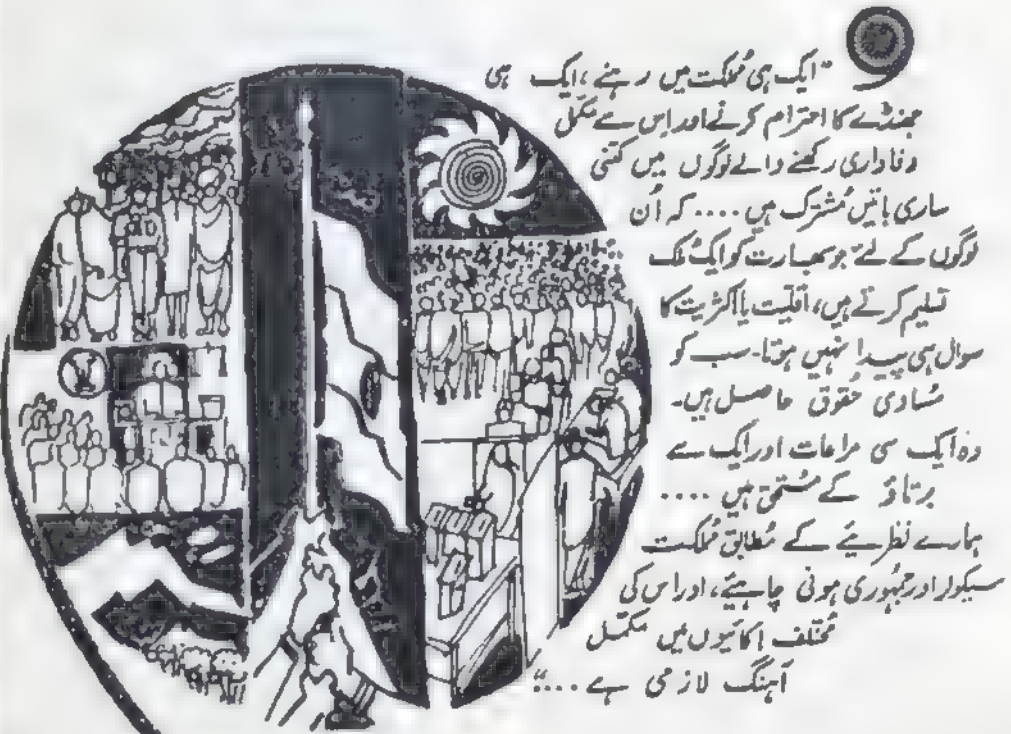 "ایک ہی مُملکت میں رہنے ، ایک ہی
جھنڈے کا احترام کرنے اور اِس سے مکمل
وفاداری رکھنے والے لوگوں میں کتنی
ساری باتیں مُشترک ہیں .... کہ اُن
لوگوں کے لئے جو بھارت کو ایک مُلک
تسلیم کرتے ہیں، اقلیت یا اکثریت کا
سوال ہی پیدا نہیں ہوتا۔ سب کو
مُساوی حُقوق حاصل ہیں۔
وہ ایک سی مراعات اور ایک سے
برتاؤ کے مُستحق ہیں ....
ہمارے نظریئے کے مُطابق مُملکت
سیکولر اور جمہُوری ہونی چاہیئے، اور اس کی
مُختلف اِکائیوں میں مکمّل
آہنگ لازمی ہے ...."